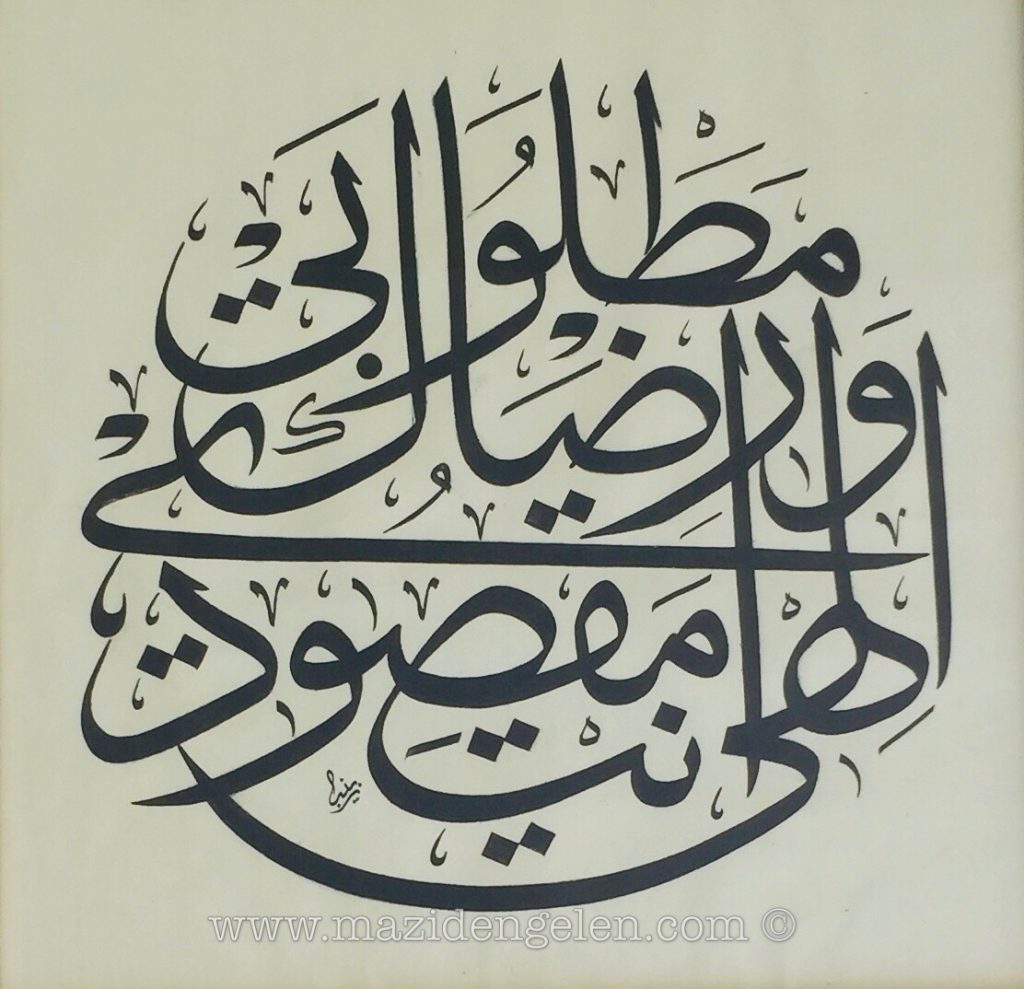 الهى انت مقصودى
ورضاك مطلوبى
www.mazidengelen.com ©